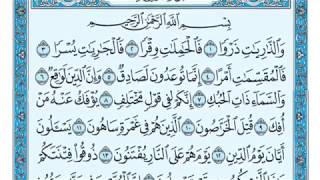 بِسْمِ اللَّهِ الرَّحْمَٰنِ الرَّحِيمِ
وَالذَّارِيَاتِ ذَرْوًا ١ فَالْحَامِلَاتِ وِقْرًا ٢ فَالْجَارِيَاتِ يُسْرًا ٣
فَالْمُقَسِّمَاتِ أَمْرًا ٤ إِنَّمَا تُوعَدُونَ لَصَادِقٌ ٥ وَإِنَّ الدِّينَ لَوَاقِعٌ ٦
وَالسَّمَاءِ ذَاتِ الْحُبُكِ ٧ إِنَّكُمْ لَفِي قَوْلٍ مُخْتَلِفٍ ٨ يُؤْفَكُ عَنْهُ مَنْ
أُفِكَ ٩ قُتِلَ الْخَرَّاصُونَ ١٠ الَّذِينَ هُمْ فِي غَمْرَةٍ سَاهُونَ ١١ يَسْأَلُونَ
أَيَّانَ يَوْمُ الدِّينِ ١٢ يَوْمَ هُمْ عَلَى النَّارِ يُفْتَنُونَ ١٣ ذُوقُوا فِتْنَتَكُمْ